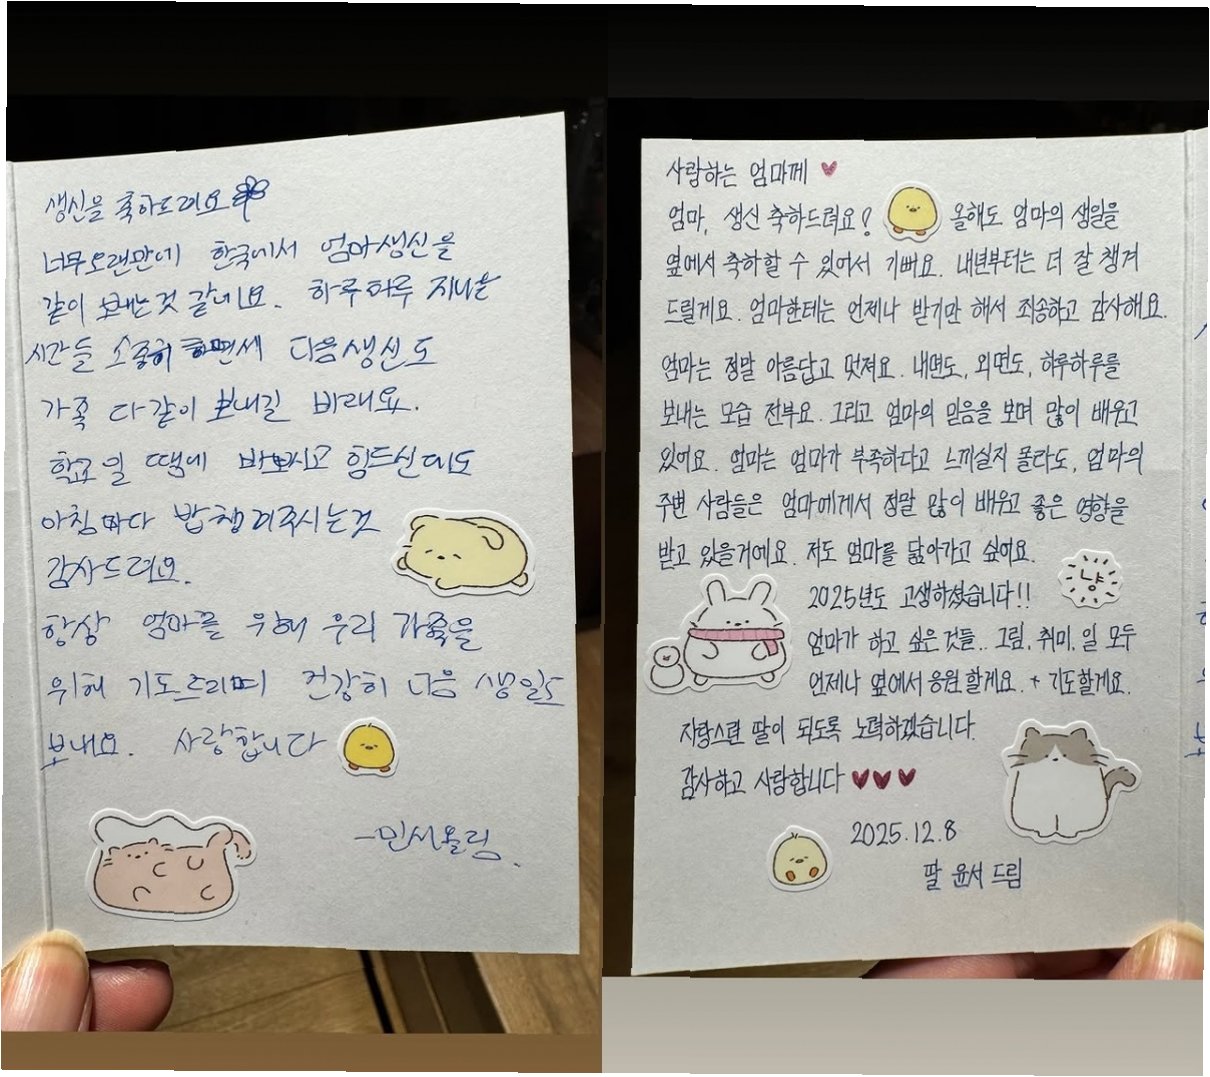 생신을 축하드려요
너무오랜만에 한국에서 엄마생신을
같이 보내는것 같네요. 하루하루 지나는
시간들 소중히 하면서 다음생신도
가족 다같이 보내길 바래요.
학교 일 땜에 바쁘시고 힘드신데도
아침마다 밥챙겨주시는것
감사드려요.
항상 엄마를 위해 우리 가족을
위해 기도드리며 건강히 다음 생일도
보내요. 사랑합니다
-민서올림.
사랑하는 엄마께
엄마, 생신 축하드려요! 올해도 엄마의 생일을
옆에서 축하할 수 있어서 기뻐요. 내년부터는 더 잘 챙겨
드릴게요. 엄마한테는 언제나 받기만 해서 죄송하고 감사해요.
엄마는 정말 아름답고 멋져요. 내면도, 외면도, 하루하루를
보내는 모습 전부요. 그리고 엄마의 믿음을 보며 많이 배우고
있어요. 엄마는 엄마가 부족하다고 느끼실지 몰라도, 엄마의
주변 사람들은 엄마에게서 정말 많이 배우고 좋은 영향을
받고 있을거에요. 저도 엄마를 닮아가고 싶어요.
2025년도 고생하셨습니다!!
냥
엄마가 하고 싶은 것들.. 그림, 취미, 일 모두
언제나 옆에서 응원할게요. + 기도할게요.
자랑스런 딸이 되도록 노력하겠습니다.
감사하고 사랑합니다
2025.12.8
딸 윤서 드림